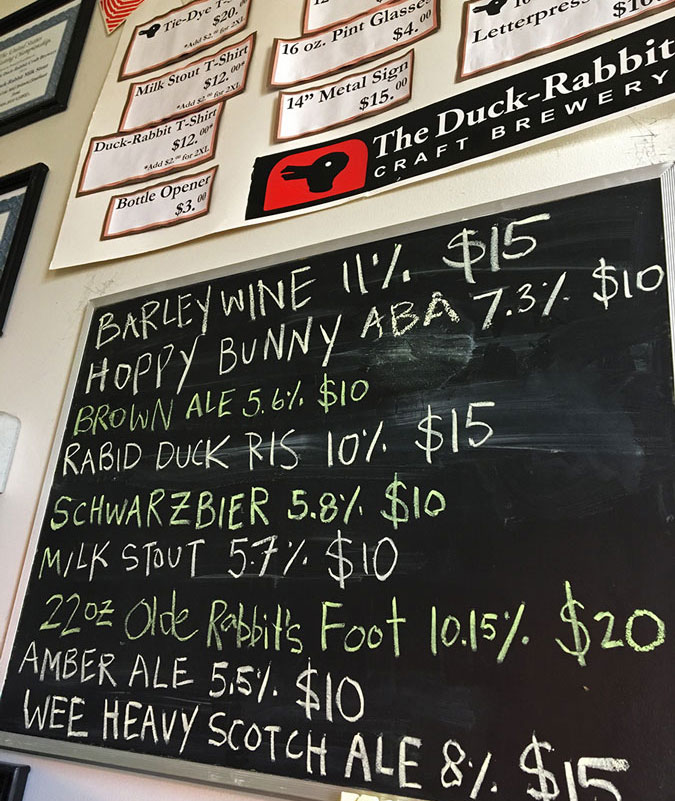 Tie-Dye T-
$20.
*Add $2.00 for 2XL
Milk Stout T-Shirt
$12.00*
*Add $2.00 for 2XL
Duck-Rabbit T-Shirt
$12.00*
*Add $2.00 for 2XL
Bottle Opener
$3.00
16 oz. Pint Glasses
$4.00
14" Metal Sign
$15.00
Letterpress
The Duck-Rabbit
CRAFT BREWERY
BARLEYWINE 11% $15
HOPPY BUNNY ABA 7.3% $10
BROWN ALE 5.6% $10
RABID DUCK RIS 10% $15
SCHWARZBIER 5.8% $10
MILK STOUT 5.7% $10
22oz Olde Rabbit's Foot 10.15% $20
AMBER ALE 5.5% $10
WEE HEAVY SCOTCH ALE 8% $15